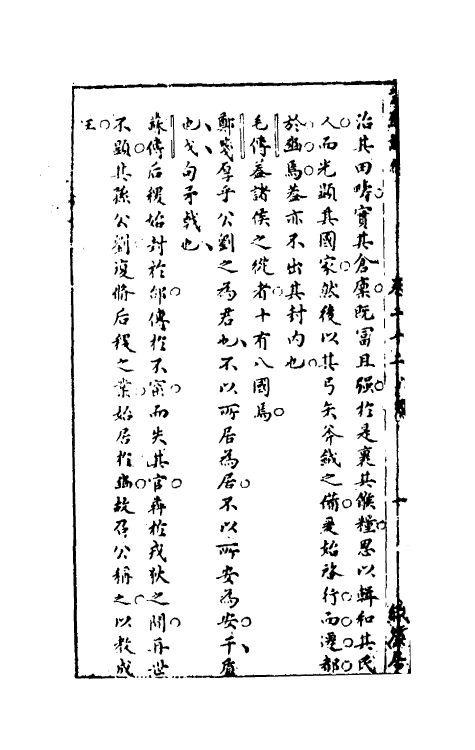 卷二十二公劉
十
治其田疇實其倉廩既富且强於是裹其餱糧思以輯和其民
人而光顯其國家然後以其弓矢斧鉞之備爰始啓行而遷都
於豳焉葢亦不出其封内也
毛傳葢諸侯之從者十有八國焉
鄭箋厚乎公劉之為君也不以所居為居不以所安為安干盾
也戈句矛戟也
蘇傳后稷始封於邰傳於不窋而失其官奔於戎狄之間再世
不顯其孫公劉復脩后稷之業始居於豳故召公稱之以教成
王